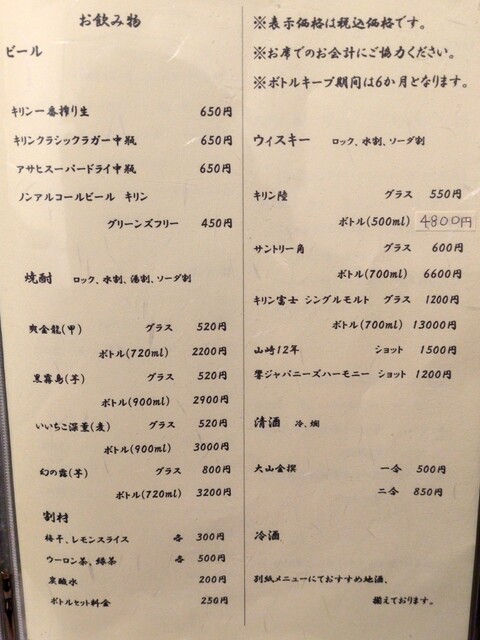 お飲み物
ビール
キリン一番搾り生 650円
キリンクラシックラガー中瓶 650円
アサヒスーパードライ中瓶 650円
ノンアルコールビール キリン
グリーンズフリー 450円
焼酎 ロック、水割、湯割、ソーダ割
爽金龍(甲) グラス 520円
ボトル(720ml) 2200円
黒霧島(芋) グラス 520円
ボトル(900ml) 2900円
いいちこ深薫(麦) グラス 520円
ボトル(900ml) 3000円
幻の露(芋) グラス 800円
ボトル(720ml) 3200円
割材
梅干、レモンスライス 各 300円
ウーロン茶、緑茶 各 500円
炭酸水 200円
ボトルセット料金 250円
※表示価格は税込価格です。
※お席でのお会計にご協力ください。
※ボトルキープ期間は6か月となります。
ウィスキー ロック、水割、ソーダ割
キリン陸 グラス 550円
ボトル(500ml) 4800円
サントリー角 グラス 600円
ボトル(700ml) 6600円
キリン富士 シングルモルト グラス 1200円
ボトル(700ml) 13000円
山崎12年 ショット 1500円
響ジャパニーズハーモニー ショット 1200円
清酒 冷、燗
大山金撰 一合 500円
二合 850円
冷酒
別紙メニューにておすすめ地酒、
揃えております。